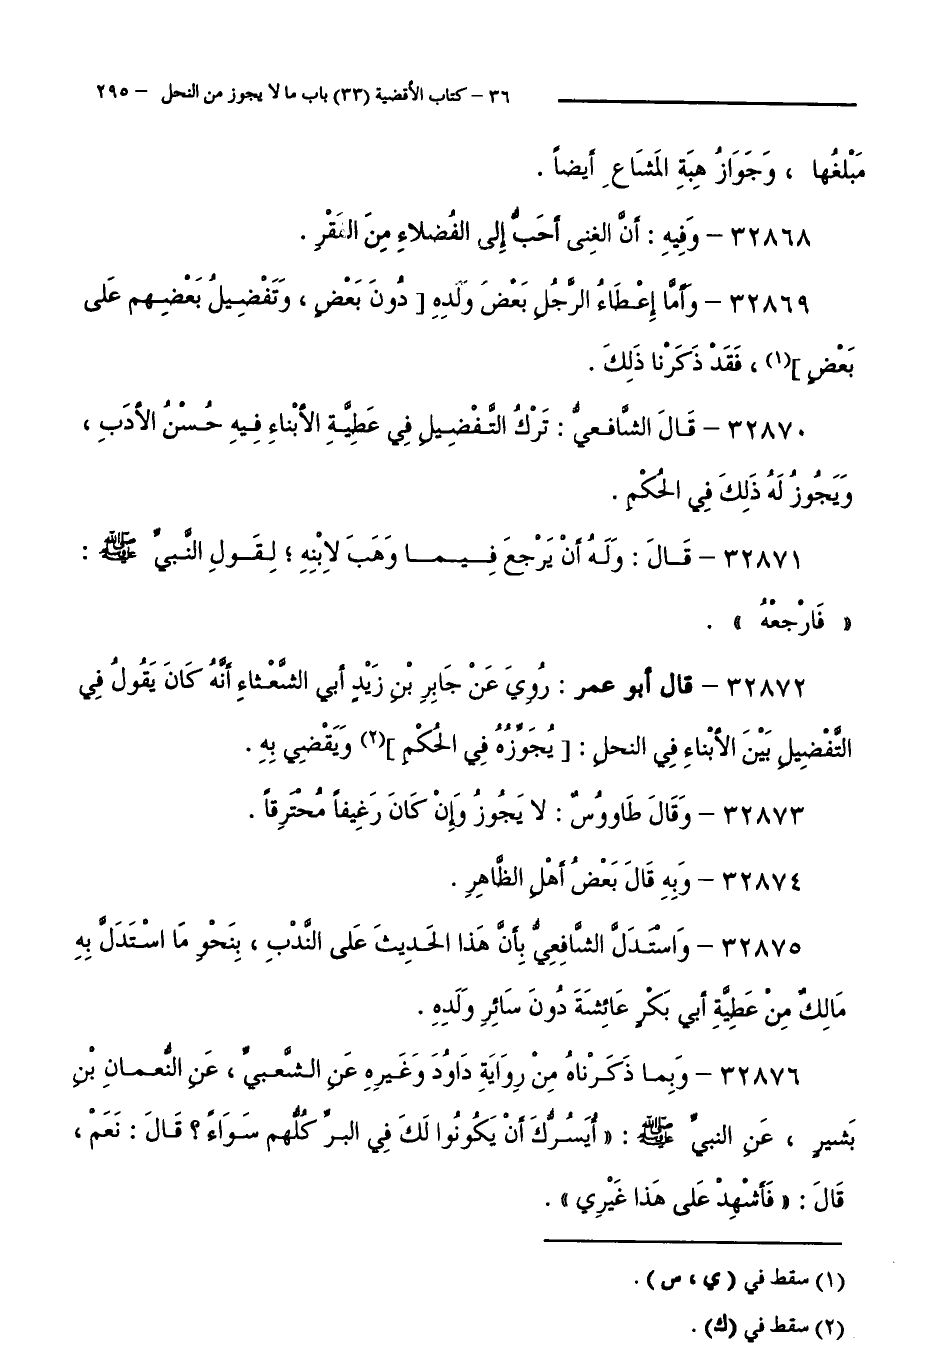 ٣٦ – كتاب الأقضية (٣٣) باب ما لا يجوز من النحل – ٢٩٥
مَبْلَغُها ، وَجَوَازُ هِبَةِ المَشَاعِ أيضاً .
٣٢٨٦٨ – وَفِيهِ : أنَّ الغِنى أحَبُّ إلى الفُضلاءِ مِنَ الفَقْرِ .
٣٢٨٦٩ – وَأمَّا إِعْطَاءُ الرَّجُلِ بَعْضَ وَلَدِهِ [ دُونَ بَعْضٍ ، وَتَفْضِيلُ بَعْضِهِم عَلى
بَعْضٍ ](١) ، فَقَدْ ذَكَرْنا ذَلِكَ .
٣٢٨٧٠ – قَالَ الشَّافعيُّ : تَرْكُ التَّفْضِيلِ فِي عَطِيَّةِ الأبْناءِ فِيهِ حُسْنُ الأدَبِ ،
وَيَجُوزُ لَهُ ذَلِكَ فِي الحُكْمِ .
٣٢٨٧١ – قَالَ : وَلَهُ أنْ يَرْجعَ فِيما وَهَبَ لابْنِهِ ؛ لِقَولِ النَّبيِّ ﷺ :
« فَارْجعْهُ » .
٣٢٨٧٢ – قال أبو عمر : رُوِيَ عَنْ جَابِرِ بْنِ زَيْدٍ أبي الشَّعْثاءِ أنَّهُ كَانَ يَقُولُ فِي
التَّفْضِيلِ بَيْنَ الأبْناءِ فِي النحلِ : [ يُجَوِّزُهُ فِي الحُكْمِ ](٢) وَيَقْضِي بِهِ .
٣٢٨٧٣ – وَقَالَ طَاووُسٌ : لا يَجُوزُ وَإِنْ كَانَ رَغِيفاً مُحْتَرِقاً .
٣٢٨٧٤ – وَبِهِ قَالَ بَعْضُ أهْلِ الظَّاهِرِ .
٣٢٨٧٥ – وَاسْتَدَلَّ الشَّافِعِيُّ بِأنَّ هَذا الحَدِيثَ عَلى النَّدْبِ ، بِنَحْوِ مَا اسْتَدَلَّ بِهِ
مَالِكٌ مِنْ عَطِيَّةِ أبي بَكْرٍ عَائِشَةَ دُونَ سَائِرِ وَلَدِهِ .
٣٢٨٧٦ – وَبِما ذَكَرْناهُ مِنْ رِوَايَةِ دَاوُدَ وَغَيرِهِ عَنِ الشَّعبيِّ ، عَنِ النُّعمانِ بْنِ
بَشيرٍ ، عَنِ النبيِّ ﷺ : « أيَسُرُّكَ أنْ يَكُونُوا لَكَ فِي البرِّ كُلُّهم سَوَاءً ؟ قَالَ : نَعَمْ ،
قَالَ : « فَأشْهِدْ عَلى هَذا غَيْرِي » .
(١) سقط في ( ي ، س ) .
(٢) سقط في (ك) .